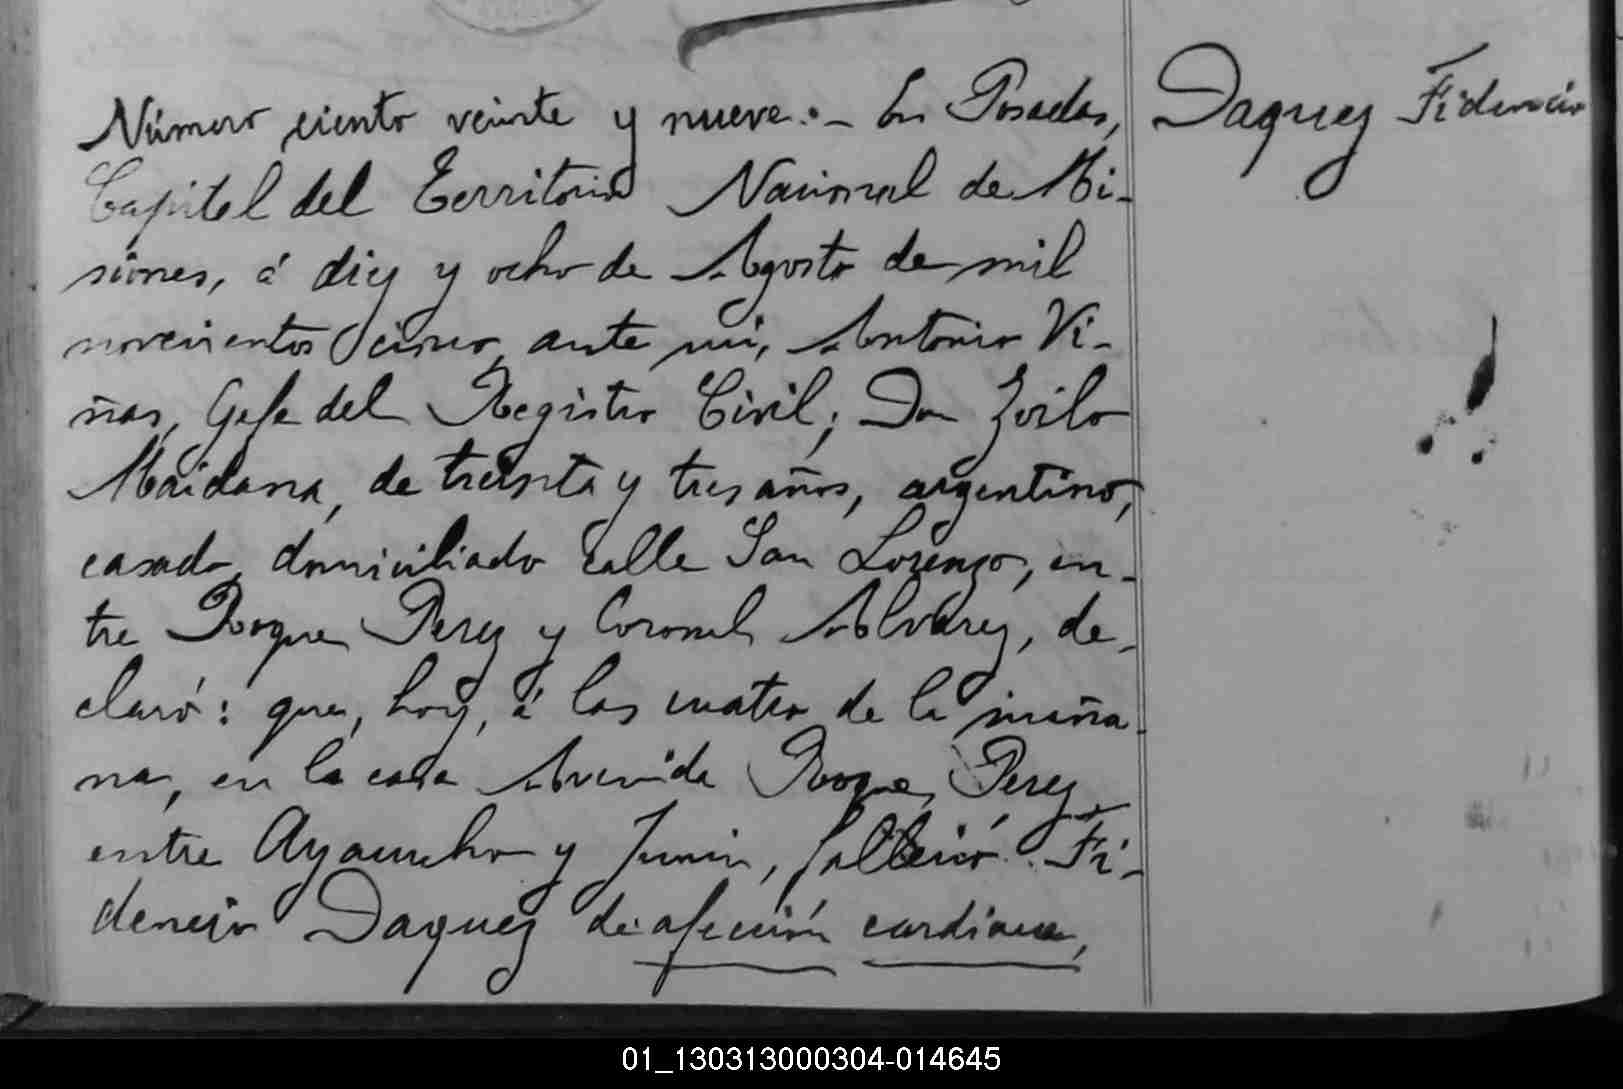 Número ciento veinte y nueve.- En Posadas,
Daquez Fidencio
Capital del Territorio Nacional de Mi-
siones, á diez y ocho de Agosto de mil
novecientos cinco, ante mi, Antonio Vi-
ñas, Gefe del Registro Civil; Don Zoilo
Maidana, de treinta y tres años, argentino,
casado, domiciliado calle San Lorenzo, en-
tre Roque Perez y Coronel Alvarez, de-
claró: que, hoy, á las cuatro de la maña-
na, en la casa Avenida Roque Perez
entre Ayacucho y Junin, falleció Fi-
dencio Daquez de afección cardiaca,
01_130313000304-014645